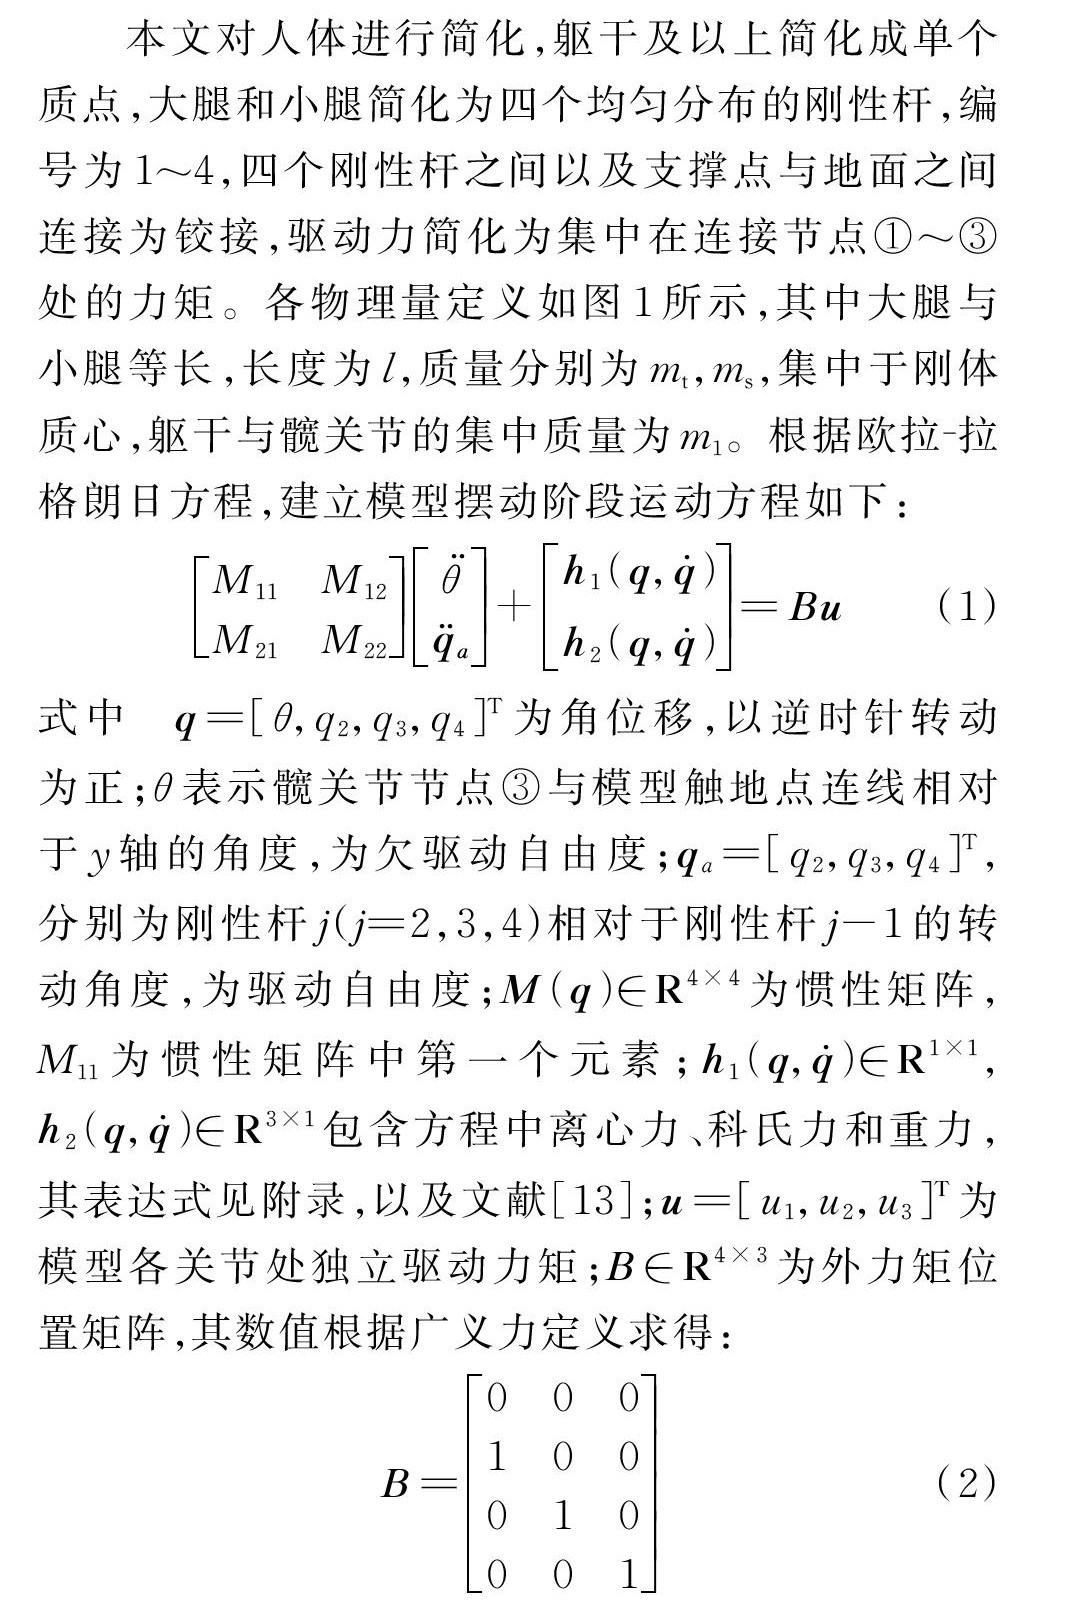 本文对人体进行简化,躯干及以上简化成单个
质点,大腿和小腿简化为四个均匀分布的刚性杆,编
号为1~4,四个刚性杆之间以及支撑点与地面之间
连接为铰接,驱动力简化为集中在连接节点①~③
处的力矩。各物理量定义如图1所示,其中大腿与
小腿等长,长度为l,质量分别为mₜ,mₛ,集中于刚体
质心,躯干与髋关节的集中质量为m₁。根据欧拉-拉
格朗日方程,建立模型摆动阶段运动方程如下:
[M₁₁ M₁₂; M₂₁ M₂₂][θ̈; q̈ₐ]+[h₁(q,q̇); h₂(q,q̇)]=Bu (1)
式中 q=[θ,q₂,q₃,q₄]ᵀ为角位移,以逆时针转动
为正;θ表示髋关节节点③与模型触地点连线相对
于y轴的角度,为欠驱动自由度;qₐ=[q₂,q₃,q₄]ᵀ,
分别为刚性杆j(j=2,3,4)相对于刚性杆j-1的转
动角度,为驱动自由度;M(q)∈R⁴ˣ⁴为惯性矩阵,
M₁₁为惯性矩阵中第一个元素;h₁(q,q̇)∈R¹ˣ¹,
h₂(q,q̇)∈R³ˣ¹包含方程中离心力、科氏力和重力,
其表达式见附录,以及文献[13];u=[u₁,u₂,u₃]ᵀ为
模型各关节处独立驱动力矩;B∈R⁴ˣ³为外力矩位
置矩阵,其数值根据广义力定义求得:
B=[0 0 0; 1 0 0; 0 1 0; 0 0 1] (2)